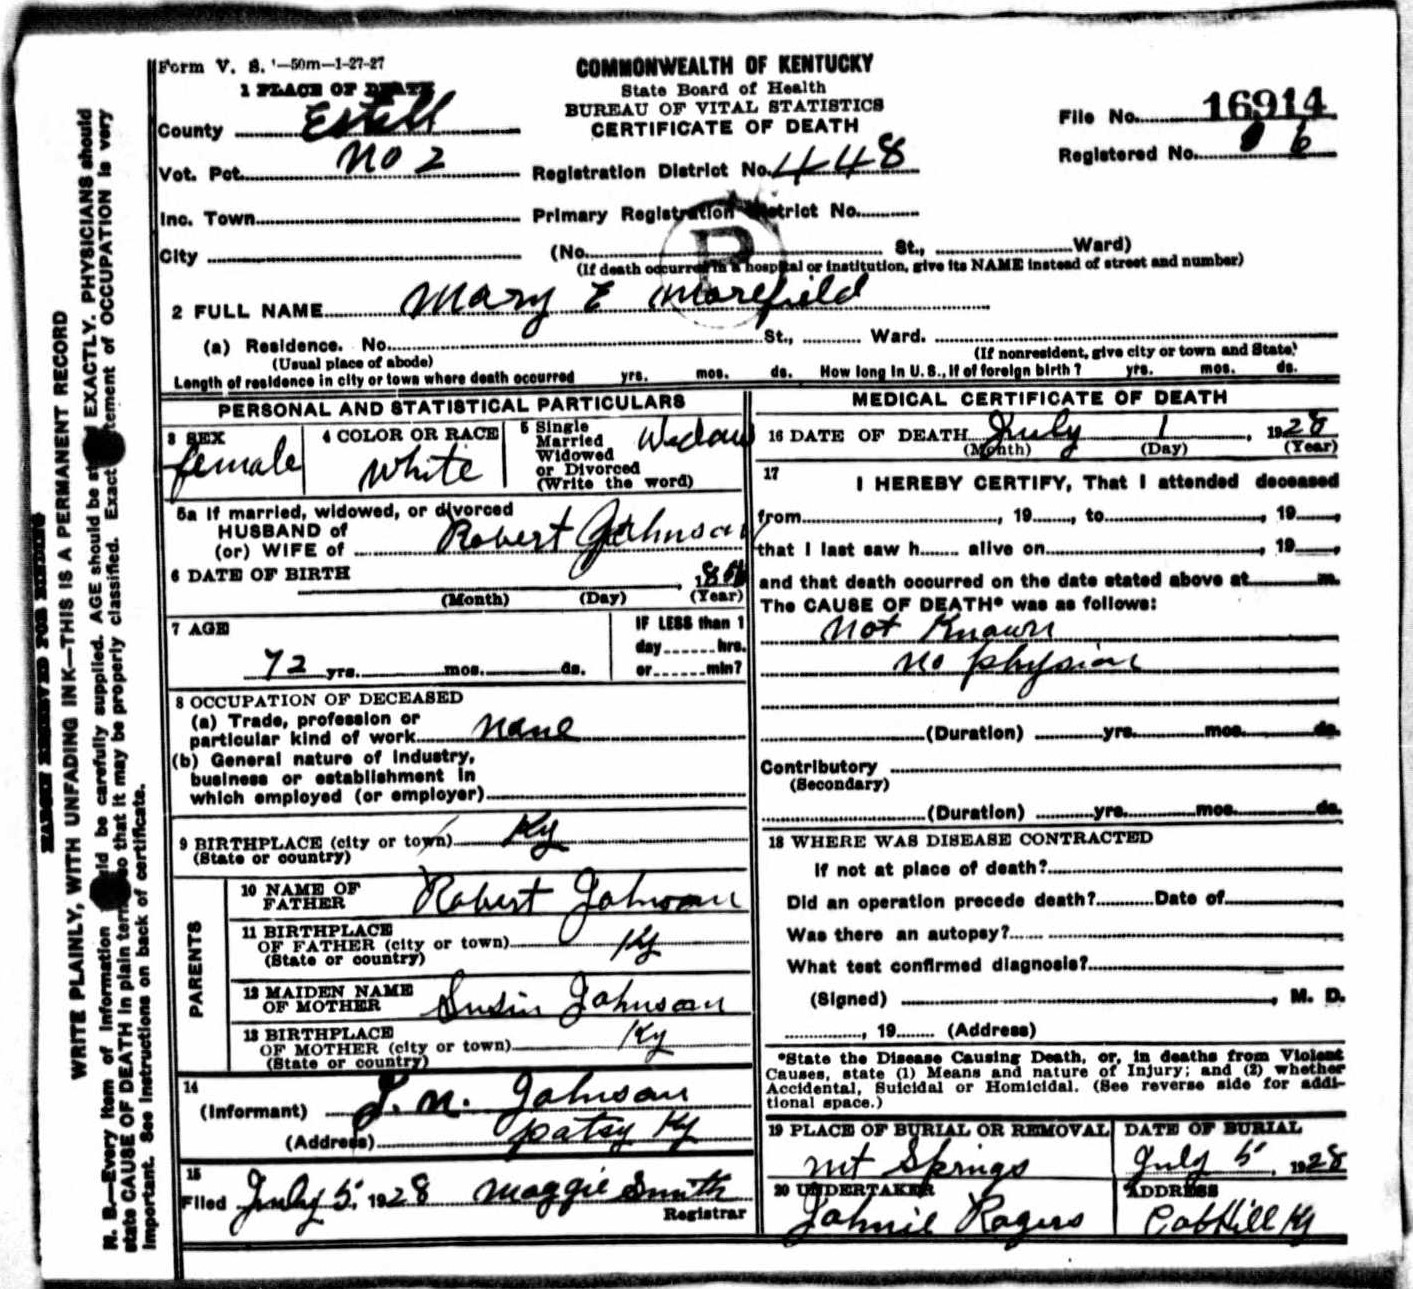 Form V. S. 1—50m—1-27-27
COMMONWEALTH OF KENTUCKY
State Board of Health
BUREAU OF VITAL STATISTICS
CERTIFICATE OF DEATH
File No. 16914
Registered No. 6
1 PLACE OF DEATH
County Estell
Vot. Pct. No 2
Registration District No. 448
Inc. Town
Primary Registration District No.
City
(No. St., Ward)
(If death occurred in a hospital or institution, give its NAME instead of street and number)
P
2 FULL NAME Mary E Morefield
(a) Residence. No. St., Ward.
(Usual place of abode)
(If nonresident, give city or town and State)
Length of residence in city or town where death occurred yrs. mos. ds. How long in U. S., if of foreign birth? yrs. mos. ds.
PERSONAL AND STATISTICAL PARTICULARS
3 SEX
female
4 COLOR OR RACE
White
5 Single
Married
Widowed
or Divorced
(Write the word)
Widow
5a If married, widowed, or divorced
HUSBAND of
(or) WIFE of Robert Johnson
6 DATE OF BIRTH
1856
(Month) (Day) (Year)
7 AGE
72 yrs. mos. ds.
IF LESS than 1
day hrs.
or min?
8 OCCUPATION OF DECEASED
(a) Trade, profession or
particular kind of work None
(b) General nature of industry,
business or establishment in
which employed (or employer)
9 BIRTHPLACE (city or town) Ky
(State or country)
PARENTS
10 NAME OF
FATHER Robert Johnson
11 BIRTHPLACE
OF FATHER (city or town) Ky
(State or country)
12 MAIDEN NAME
OF MOTHER Susin Johnson
13 BIRTHPLACE
OF MOTHER (city or town) Ky
(State or country)
14
(Informant) J. N. Johnson
(Address) Patsy Ky
15
Filed July 5, 1928 Maggie Smith
Registrar
MEDICAL CERTIFICATE OF DEATH
16 DATE OF DEATH July 1, 1928
(Month) (Day) (Year)
17
I HEREBY CERTIFY, That I attended deceased
from , 19 , to , 19 ,
that I last saw h alive on , 19 ,
and that death occurred on the date stated above at m.
The CAUSE OF DEATH* was as follows:
Not Known
No physian
(Duration) yrs. mos. ds.
Contributory
(Secondary)
(Duration) yrs. mos. ds.
18 WHERE WAS DISEASE CONTRACTED
If not at place of death?
Did an operation precede death? Date of
Was there an autopsy?
What test confirmed diagnosis?
(Signed) , M. D.
, 19 (Address)
*State the Disease Causing Death, or, in deaths from Violent
Causes, state (1) Means and nature of Injury; and (2) whether
Accidental, Suicidal or Homicidal. (See reverse side for addi-
tional space.)
19 PLACE OF BURIAL OR REMOVAL
Mt Springs
DATE OF BURIAL
July 5, 1928
20 UNDERTAKER
Johnie Rogers
ADDRESS
CobHill Ky
MARGIN RESERVED FOR BINDING
WRITE PLAINLY, WITH UNFADING INK—THIS IS A PERMANENT RECORD
N. B.—Every item of information should be carefully supplied. AGE should be stated EXACTLY. PHYSICIANS should
state CAUSE OF DEATH in plain terms, so that it may be properly classified. Exact statement of OCCUPATION is very
important. See instructions on back of certificate.